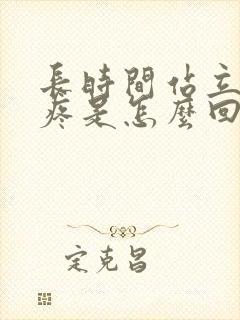 長時間佔立
疼是怎麼回
宋克昌